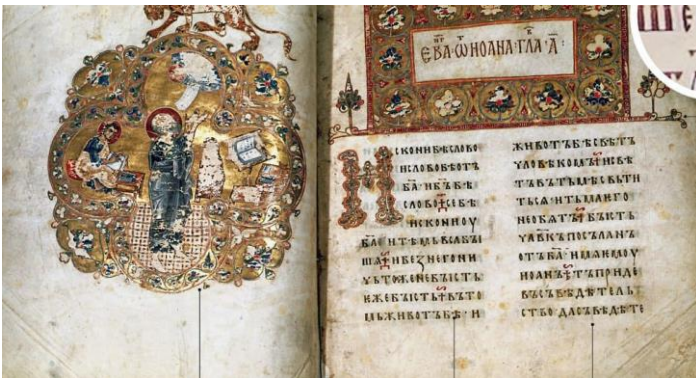 ЕВА·Ѡ ИОАНА·ГЛА·А҃:
ИСКОНИБѢСЛОВО
ИСЛОВОБѢОТЪ
Б҃АИБ҃ЪБѢ
СЛОВО·СЕБѢ
ИСКОНИОУ
Б҃АИТѢМЬВСѦБЫ
ШѦ·ИБЕЗНЕГОНИ
ЧЬТОЖЕНЕБЫСТЬ
ѤЖЕБЫСТЬ·ВЪТО
МЬЖИВОТЪБѢ·И
ЖИВОТЪБѢСВѢТЪ
ЧЛОВѢКОМЪ·ИСВѢ
ТЪВЪТЬМѢСВЬТИ
ТЬСѦ·ИТЬМАѤГО
НЕОБѦТЪ·БЫСТЬ
ЧЛ҃ВКЪПОСЪЛАНЪ
ОТЪБ҃А·ИМѦѤМОУ
ИОАНЪ·ТЪПРИДЕ
ВЪСЪВѢДѢТЕЛЬ
СТВО·ДАСЪВѢДѢТЕ